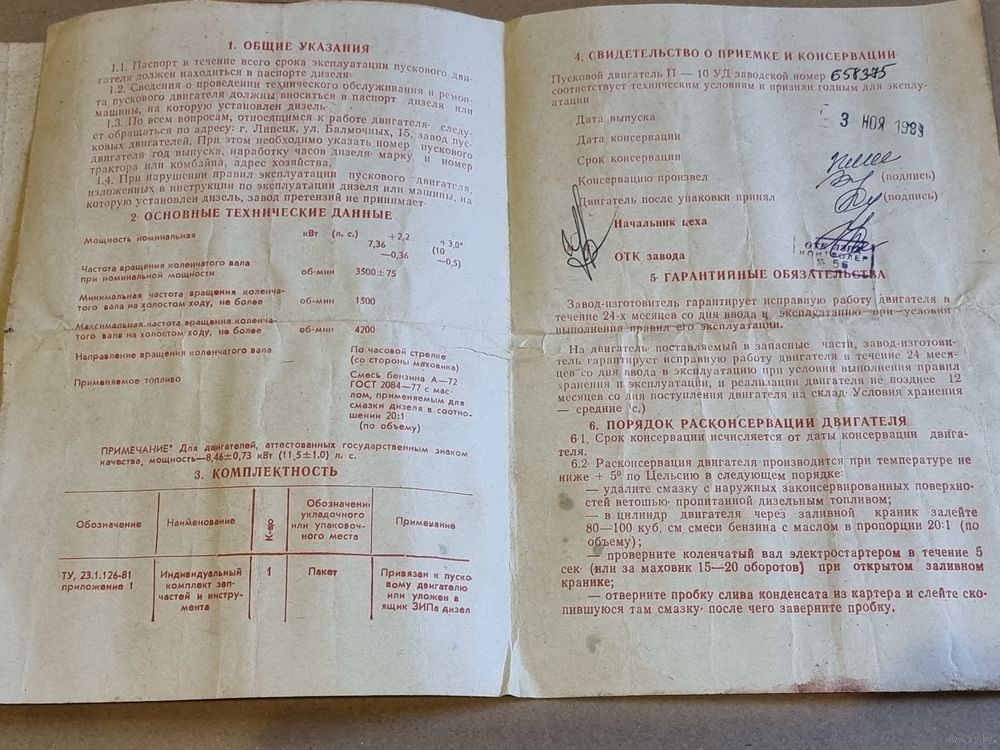 1. ОБЩИЕ УКАЗАНИЯ
1.1. Паспорт в течение всего срока эксплуатации пускового дви-
гателя должен находиться в паспорте дизеля·
1.2. Сведения о проведении технического обслуживания и ремон-
та пускового двигателя должны вноситься в паспорт дизеля или
машины, на которую установлен дизель·
1.3. По всем вопросам, относящимся к работе двигателя· следу-
ет обращаться по адресу: г. Липецк, ул. Балмочных, 15, завод пус-
ковых двигателей. При этом необходимо указать номер пускового
двигателя· год выпуска, наработку часов дизеля· марку и номер
трактора или комбайна, адрес хозяйства.
1.4. При нарушении правил эксплуатации пускового двигателя,
изложенных в инструкции по эксплуатации дизеля или машины, на
которую установлен дизель, завод претензий не принимает·
2· ОСНОВНЫЕ ТЕХНИЧЕСКИЕ ДАННЫЕ
Мощность номинальная кВт (л. с.) +2,2 +3,0*
7,36 (10
—0,36 —0,5)
Частота вращения коленчатого вала
при номинальной мощности об·мин 3500±75
Минимальная частота вращения коленча-
того вала на холостом ходу, не более об·мин 1500
Максимальная частота вращения коленча-
того вала на холостом ходу, не более об·мин 4200
Направление вращения коленчатого вала По часовой стрелке
(со стороны маховика)
Применяемое топливо Смесь бензина А—72
ГОСТ 2084—77 с мас-
лом, применяемым для
смазки дизеля в соотно-
шении 20:1
(по объему)
ПРИМЕЧАНИЕ* Для двигателей, аттестованных государственным знаком
качества, мощность—8,46±0,73 кВт (11,5±1.0) л. с.
3. КОМПЛЕКТНОСТЬ
Обозначение Наименование К-во Обозначени
укладочного
или упаковоч-
ного места Примечание
ТУ, 23.1.126-81
приложение 1 Индивидуальный
комплект зап-
частей и инстру-
мента 1 Пакет Привязан к пуско
вому двигателю
или уложен в
ящик ЗИПа дизел
4. СВИДЕТЕЛЬСТВО О ПРИЕМКЕ И КОНСЕРВАЦИИ
Пусковой двигатель П — 10 УД заводской номер 658375
соответствует техническим условиям и признан годным для эксплу-
атации
Дата выпуска 3 НОЯ 1989
Дата консервации
Срок консервации
Консервацию произвел (подпись)
Двигатель после упаковки принял (подпись)
Начальник цеха
ОТК завода ОТК
КОНТРОЛЕР
№ 56
5· ГАРАНТИЙНЫЕ ОБЯЗАТЕЛЬСТВА
Завод-изготовитель гарантирует исправную работу двигателя в
течение 24-х месяцев со дня ввода в эксплуатацию при условии
выполнения правил его эксплуатации.
На двигатель· поставляемый в запасные части, завод-изготови-
тель гарантирует исправную работу двигателя в течение 24 меся-
цев со дня ввода в эксплуатацию при условии выполнения правил
хранения и эксплуатации, и реализации двигателя не позднее 12
месяцев со дня поступления двигателя на склад· Условия хранения
— средние (с.)
6. ПОРЯДОК РАСКОНСЕРВАЦИИ ДВИГАТЕЛЯ
6·1. Срок консервации исчисляется от даты консервации двига-
теля.
6.2· Расконсервация двигателя производится при температуре не
ниже + 5° по Цельсию в следующем порядке:
— удалите смазку с наружных законсервированных поверхно-
стей ветошью· пропитанной дизельным топливом;
— в цилиндр двигателя через заливной краник залейте
80—100 куб. см смеси бензина с маслом в пропорции 20:1 (по
объему);
— проверните коленчатый вал электростартером в течение 5
сек· (или за маховик 15—20 оборотов) при открытом заливном
кранике;
— отверните пробку слива конденсата из картера и слейте ско-
пившуюся там смазку· после чего заверните пробку.